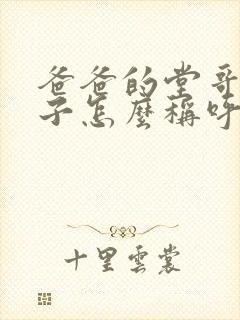 爸爸的堂哥
子怎麼稱呼
十里雲裳